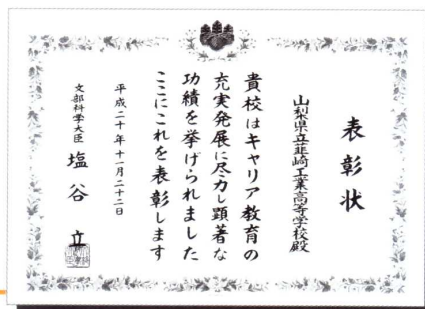 表彰状
山梨県立韮崎工業高等学校殿
貴校はキャリア教育の
充実発展に尽力し顕著な
功績を挙げられました
ここにこれを表彰します
平成二十年十一月二十二日
文部科学大臣 塩谷 立